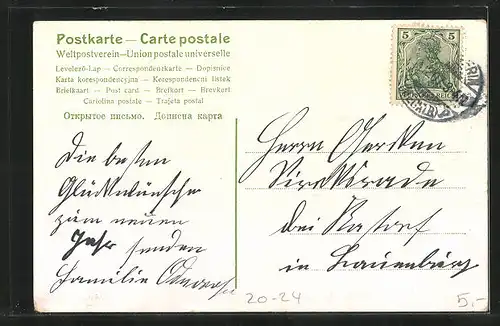 Postkarte — Carte postale
Weltpostverein — Union postale universelle
Levelező-Lap — Correspondenzkarte — Dopisnice
Karta korespondencyjna — Korespondenčni listek
Briefkaart — Post card — Brefkort — Brevkort
Cartolina postale — Tarjeta postal
Открытое письмо. Дописна карта
5 5
Herrn
bei
in Lauenburg
Die besten
Glückwünsche
zum neuen
Jahr senden
Familie
20-24
5.-